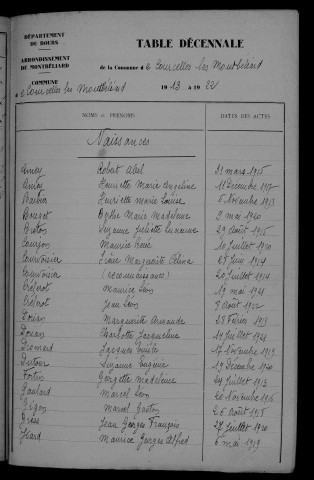 DÉPARTEMENT
DU DOUBS
ARRONDISSEMENT
DE MONTBÉLIARD
COMMUNE
de Courcelles les Montbéliard
TABLE DÉCENNALE
de la Commune de Courcelles les Montbéliard
1913 à 1922
NOMS et PRÉNOMS DATES DES ACTES
Naissances
Robert Abel 31 mars 1915
Henriette Marie Angeline 11 Décembre 1917
Barbier Henriette Marie Louise 5 Novembre 1913
Marie Madeleine 2 mai 1920
Suzanne Juliette 29 Août
Maurice René 10 Juillet 1920
Courvoisier Marguerite Céline 27 Juin 1914
Courvoisier (reconnaissance) 20 Juillet 1914
Maurice Léon 19 mai 1921
Jean Léon 3 Août 1922
Marguerite Armande 23 Février 1913
Charlotte Jacqueline 14 Juillet 1921
Jacques Emile 17 Novembre 1919
Dubois Suzanne Eugénie 17 Décembre 1920
Georgette Madeleine 29 Juillet 1913
Marcel Léon 20 Novembre 1916
Marcel Gaston 26 Août 1915
Jean Georges François 27 Juillet 1920
Maurice Georges Alfred 6 mai 1919